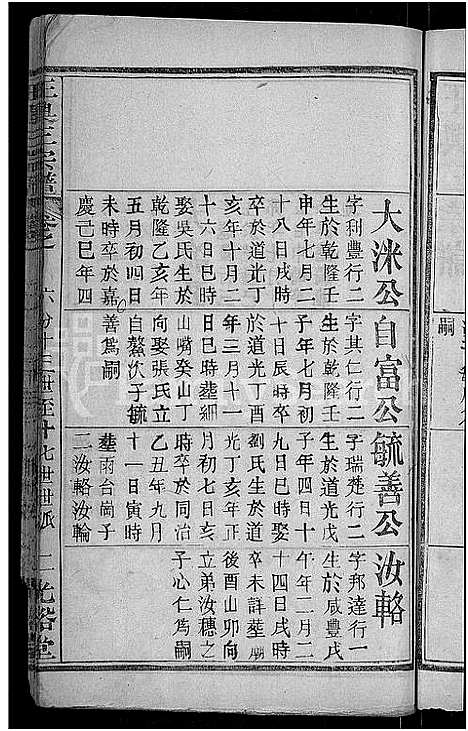 大洣公
字利豐行二
生於乾隆壬
申年七月二
十八日戌時
卒於道光丁
亥年十月二
十六日巳時
娶吳氏生於
乾隆乙亥年
五月初四日
未時卒於嘉
慶己巳年四
自富公
字其仁行二
生於乾隆壬
子年七月初
十日辰時卒
於道光丁酉
年三月十一
日巳時塟細
山嘴癸山丁
向娶張氏立
自鰲次子毓
善為嗣
毓善公
字瑞楚行二
生於道光戊
子年四月十
九日巳時娶
劉氏生於道
光丁亥年正
月初七日亥
時卒於同治
乙丑年九月
十一日寅時
塟雨台崗子
二汝輅汝輪
汝輅
字邦達行一
生於咸豐戊
午年二月二
十四日戌時
卒未詳塟廟
後酉山卯向
立弟汝穗之
子心仁為嗣
王宗譜 卷之 六分十三世至十七世世派 二 光裕堂
嗣